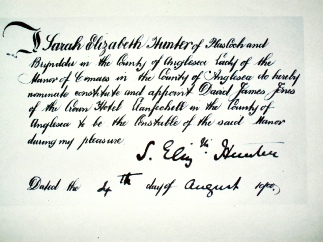 I Sarah Elizabeth Hunter of Plas Coch and
Brynddu in the County of Anglesea Lady of the
Manor of Cemaes in the County of Anglesea do hereby
nominate constitute and appoint David James Jones
of the Crown Hotel Llanfechell in the County of
Anglesea to be the Constable of the said Manor
during my pleasure
S. Eliz th Hunter
Dated the 4th day of August